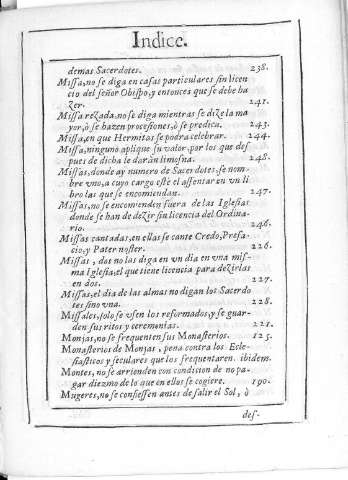 Indice.
demas Sacerdotes. 238.
Missa, no se diga en casas particulares sin licen
cio del señor Obispo, y entonces que se debe ha
zer. 241.
Missa rezada, no se diga mientras se dize la ma
yor, ò se hazen procesiones, ò se predica. 243.
Missa, en que Hermitas se podra celebrar. 244.
Missa, ninguno aplique su valor, por los que des
pues de dicha le daràn limosna. 248.
Missas, donde ay numero de Sacerdotes, se nom-
bre vno, a cuyo cargo estè el assentar en vn li
bro las que se encomiendan. 247.
Missas, no se encomienden fuera de las Iglesias
donde se han de dezir sin licencia del Ordina-
rio. 246.
Missas cantadas, en ellas se cante Credo, Prefa-
cio, y Pater noster. 226.
Missas, dos no las diga en vn dia en vna mis-
ma Iglesia, el que tiene licencia para dezirlas
en dos. 227.
Missas, el dia de las almas no digan los Sacerdo
tes sino vna. 228.
Missales, solo se vsen los reformados, y se guar-
den sus ritos y ceremonias. 221.
Monjas, no se frequenten sus Monasterios. 125.
Monasterios de Monjas, pena contra los Ecle-
siasticos y seculares que los frequentaren. ibidem.
Montes, no se arrienden con condicion de no pa-
gar diezmo de lo que en ellos se cogiere. 190.
Mugeres, no se confiessen antes de salir el Sol, ò
des-